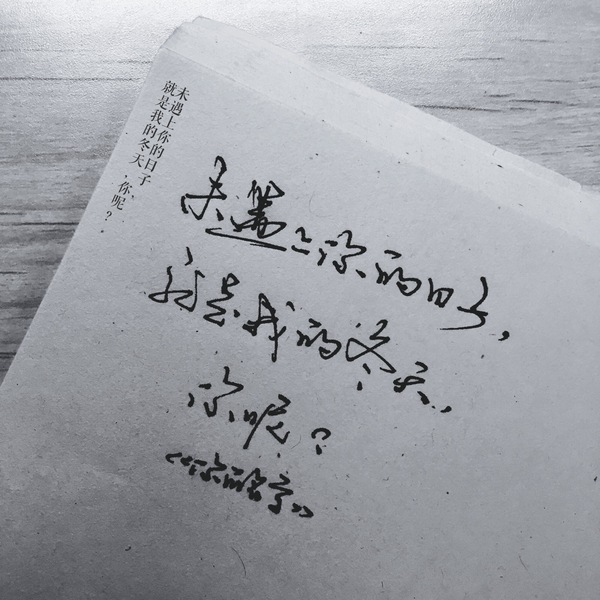 未遇上你的日子，
就是我的冬天，你呢？
未遇上你的日子，
就是我的冬天，
你呢？
《你的名字》